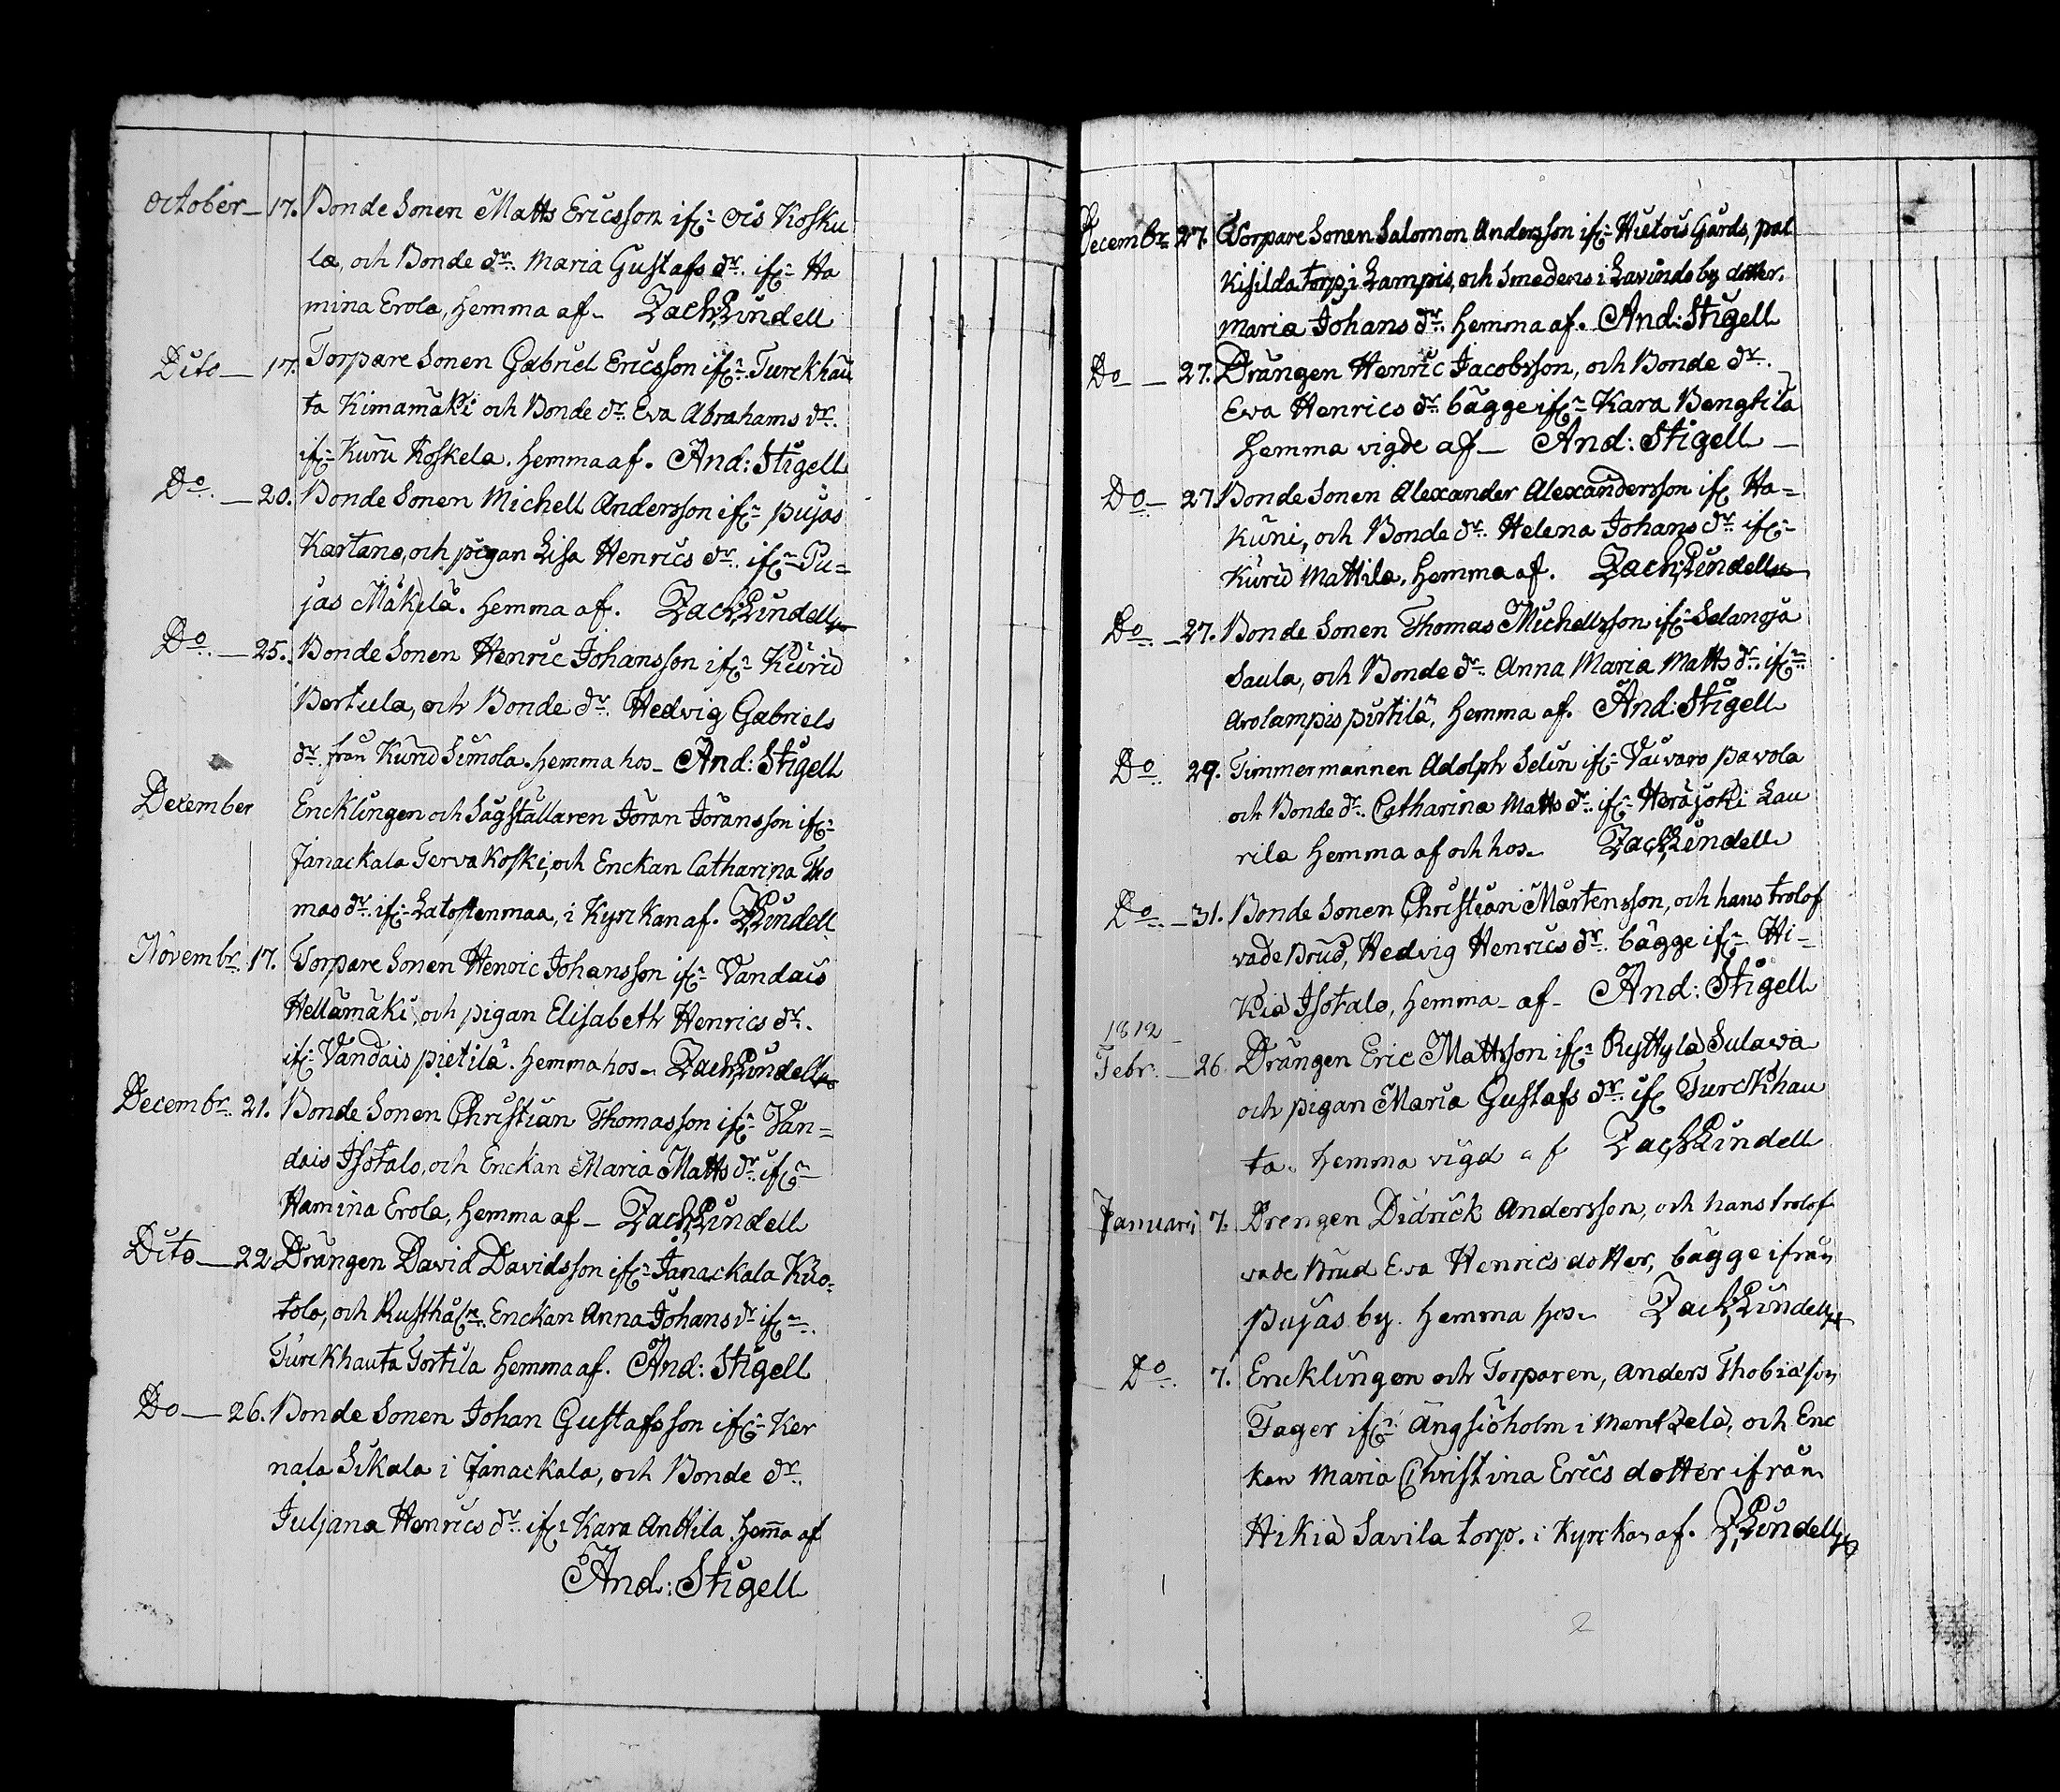 October – 17. Bonde Sonen Matts Ericsson ifr:n Ois Kosku
la, och Bonde dr. Maria Gustafs dr. ifr:n Ha
mina Erola, hemma af – Zach: Lindell
Dito – 17. Torpare Sonen Gabriel Ericsson ifr:n Turckhau
ta Kimamäki och Bonde dr. Eva Abrahams dr.
ifr:n Kuru Koskela. hemma af. And: Stigell
Do. – 20. Bonde Sonen Michell Andersson ifr:n Pujas
Kartano, och pigan Lisa Henrics dr. ifr:n Pu=
jas Mäkelä. hemma af. Zach: Lindell
Do. – 25. Bonde Sonen Henric Johansson ifr:n Kurid
Bertula, och Bonde dr. Hedvig Gabriels
dr. från Kurid Simola. hemma hos – And: Stigell
December Encklingen och Sågställaren Jöran Jöransson ifr:n
Janackala Tervakoski, och Enckan Catharina Tho
mas dr. ifr:n Latostenmaa, i Kyrckan af. Z: Lindell
Novembr. 17. Torpare Sonen Henric Johansson ifr:n Vandais
Hellämäki, och pigan Elisabeth Henrics dr.
ifr:n Vandais pietilä. hemma hos – Zach: Lindell
Decembr. 21. Bonde Sonen Christian Thomasson ifr:n Van=
dais Isotalo, och Enckan Maria Matts dr. ifr:n
Hamina Erola, hemma af – Zach: Lindell
Dito – 22. Drängen David Davidsson ifr:n Janackala Kuo-
tolo, och Rusthål:re Enckan Anna Johans dr ifr:n
Turckhauta Tortila hemma af. And: Stigell
Do – 26. Bonde Sonen Johan Gustafsson ifr:n Ker
nala Sikala i Janackala, och Bonde dr.
Juljana Henrics dr. ifr:n Kara Anttila. hem̄a af
And: Stigell
Decembr 27. Torpare Sonen Salomon Andersson ifr:n Hietois Gårds, pal
Kisilda torp, i Lampis, och Smedens i Lavindo by dotter.
Maria Johans dr. hemma af. And: Stigell
Do – 27. Drängen Henric Jacobsson, och Bonde dr.
Eva Henrics dr. bägge ifr:n Kara Bengtilä
hemma vigde af – And: Stigell –
Do – 27. Bonde Sonen Alexander Alexandersson ifr Ha=
kuni, och Bonde dr. Helena Johans dr ifr:n
Kurid Mattila. hemma af. Zach: Lindell
Do. – 27. Bonde Sonen Thomas Michellsson ifr:n Selanoja
Saula, och Bonde dr. Anna Maria Matts dr. ifr:n
Arolampis pirtilä, hemma af. And: Stigell
Do. 29. Timmermannen Adolph Selin ifr:n Vaivaro Pavola
och Bonde dr. Catharina Matts dr. ifr:n Herajoki Lau
rila hemma af och hos – Zach: Lindell
Do. – 31. Bonde Sonen Christian Mårtensson, och hans trolof
vade Brud, Hedvig Henrics dr. bägge ifr:n Hi=
kiä Isotalo, hemma – af – And: Stigell
1812
Febr. – 26. Drängen Eric Mattsson ifr:n Ryttylä Sulawa
och pigan Maria Gustafs dr. ifr Turckhau
ta. hemma vigd af Zach: Lindell
Januarij 7. Drengen Didrick Andersson, och hans trolof
vade Brud Eva Henrics dotter, bägge ifrån
Pujas by. hemma hos – Zach: Lindell
Do. 7. Encklingen och Torparen, Anders Thobiasson
Fager ifr:n Ängsiöholm i Mentzelä, och Enc
kan Maria Christina Erics dotter ifrån
Hikiä Savila torp. i Kyrckan af. Z: Lindell
2